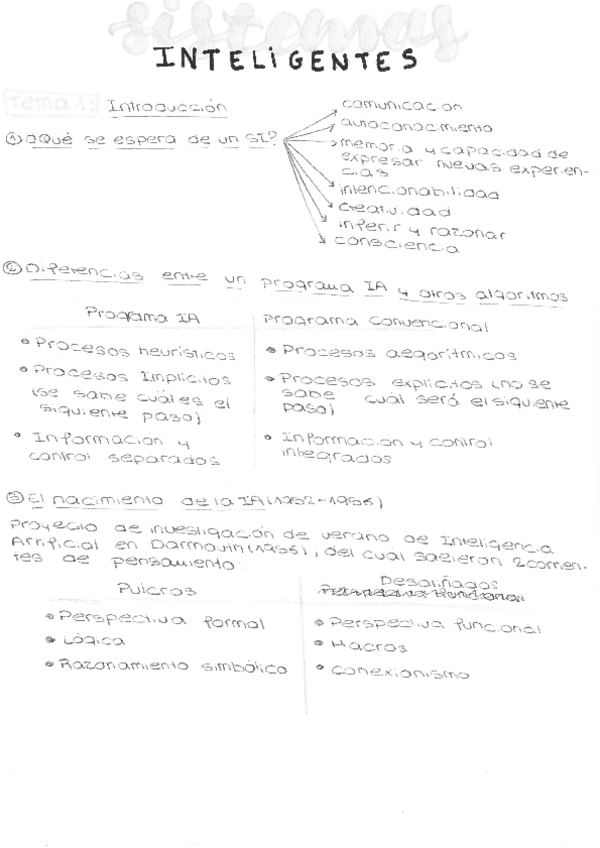 sistemas
INTELIGENTES
Tema 1: Introducción
① ¿Qué se espera de un SI?
comunicacion
autoconocimiento
memoria y capacidad de
expresar nuevas experien-
cias
intencionabilidad
creatividad
inferir y razonar
consciencia
② Diferencias entre un programa IA y otros algoritmos
Programa IA
• Procesos heurísticos
• Procesos Implícitos
(se sabe cuál es el
siguiente paso)
• Información y
control separados
Programa convencional
• Procesos algorítmicos
• Procesos explícitos (no se
sabe cuál será el siguiente
paso)
• Información y control
integrados
③ El nacimiento de la IA (1952-1956)
Proyecto de investigación de verano de Inteligencia
Artificial en Darmouth (1956), del cuál salieron 2 corrien-
tes de pensamiento:
Pulcros
• Perspectiva formal
• Lógica
• Razonamiento simbólico
Desaliñados
• Perspectiva funcional
• Macros
• Conexionismo